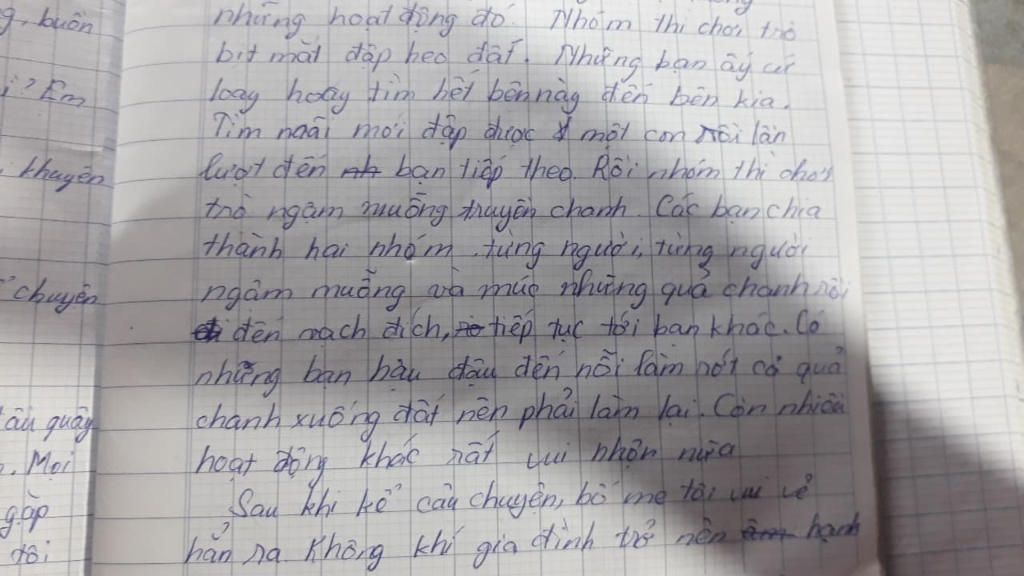 g, buồn
những hoạt động đó. Nhóm thì chơi trò
bịt mắt đập heo đất. Những bạn ấy cứ
i? Em
loay hoay tìm hết bên này đến bên kia.
Tìm mãi mới đập được một con rồi lần
khuyên
lượt đến bạn tiếp theo. Rồi nhóm thì chơi
trò ngậm muỗng truyền chanh. Các bạn chia
thành hai nhóm, từng người, từng người
chuyện
ngậm muỗng và múc những quả chanh rồi
đến vạch đích, tiếp tục tới bạn khác. Có
những bạn hậu đậu đến nỗi làm rớt cả quả
quây
chanh xuống đất nên phải làm lại. Còn nhiều
. Mọi
hoạt động khác rất vui nhộn nữa
gặp
Sau khi kể câu chuyện, bố mẹ tôi vui vẻ
tôi
hẳn ra. Không khí gia đình trở nên hạnh